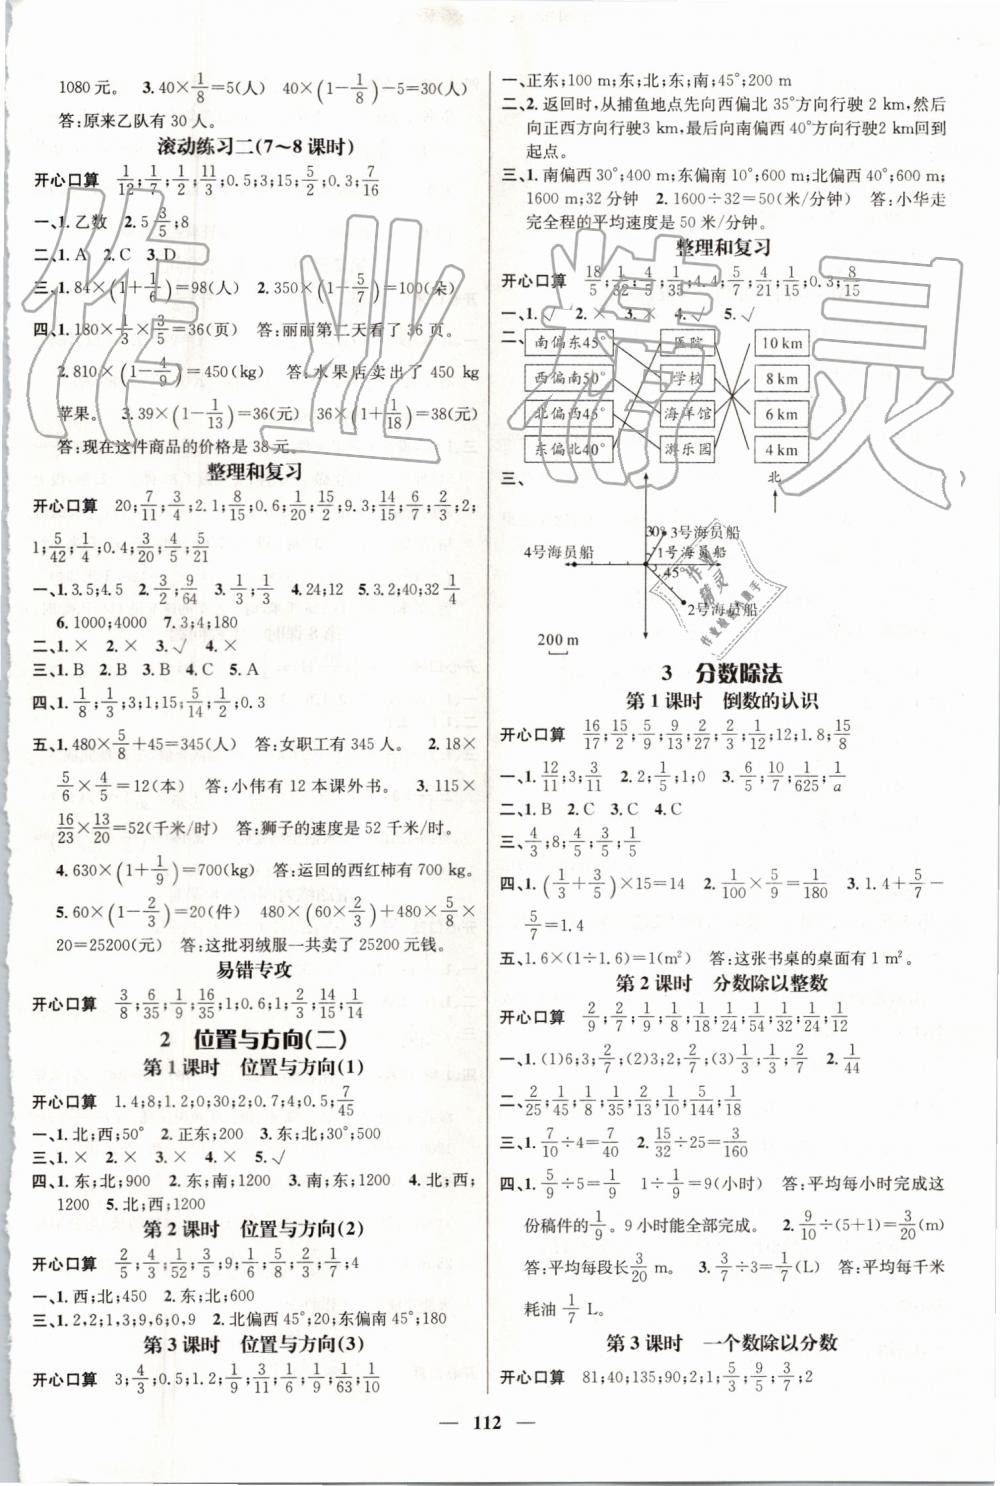 1080元。 3.40×1/8=5(人) 40×(1-1/8)-5=30(人)
答:原来乙队有30人。
滚动练习二(7~8课时)
开心口算 1/12;1/7;1/2;11/3;0.5;3;15;5/2;0.3;7/16
一、1.乙数 2.5 3/5;8
二、1.A 2.C 3.D
三、1.84×(1+1/6)=98(人) 2.350×(1-5/7)=100(朵)
四、1.180×1/3×3/5=36(页) 答:丽丽第二天看了36页。
2.810×(1-4/9)=450(kg) 答:水果店卖出了450 kg
苹果。 3.39×(1-1/13)=36(元) 36×(1+1/18)=38(元)
答:现在这件商品的价格是38元。
整理和复习
开心口算 20;7/11;3/4;2.1;8/15;0.6;1/20;15/2;9.3;14/15;6/7;2/3;2;
1;5/42;1/4;0.4;4/30;5/4;5/21
一、1.3.5;4.5 2.3/2;9/64 3.1/3;1/3 4.24;12 5.3.2;40;32 1/4
6.1000;4000 7.3;4;180
二、1.× 2.× 3.√ 4.×
三、1.B 2.B 3.B 4.C 5.A
四、1.1/8;1/3;3;1;15;5/14;1/2;0.3
五、1.480×5/8+45=345(人) 答:女职工有345人。 2.18×
5/6×4/5=12(本) 答:小伟有12本课外书。 3.115×
16/23×13/20=52(千米/时) 答:狮子的速度是52千米/时。
4.630×(1+1/9)=700(kg) 答:运回的西红柿有700 kg。
5.60×(1-2/3)=20(件) 480×(60×2/3)+480×5/8×
20=25200(元) 答:这批羽绒服一共卖了25200元钱。
易错专攻
开心口算 3/8;6/35;1/9;16/35;1;0.6;1;2/3;14/15;1/14
2 位置与方向(二)
第1课时 位置与方向(1)
开心口算 1.4;8;1.2;0;30;2;0.7;4;0.5;7/45
一、1.北;西;50° 2.正东;200 3.东;北;30°;500
三、1.× 2.× 3.× 4.× 5.√
四、1.东;北;900 2.东;南;1200 3.南;东;1200 4.北;西;
1200 5.北;西;1200
第2课时 位置与方向(2)
开心口算 2/5;4/3;1/52;3/5;9;1/6;5/8;2/3;1/7;4
一、1.西;北;450 2.东;北;600
三、1.2,2;1,3;9,6;0,9 2.北偏西45°;20;东偏南45°;180
第3课时 位置与方向(3)
开心口算 3;4/3;0.5;1.2;1/9;3/11;1/6;1/63;1/10
一、正东;100 m;东;北;东;南;45°;200 m
二、2.返回时,从捕鱼地点先向西偏北35°方向行驶2 km,然后
向正西方向行驶3 km,最后向南偏西40°方向行驶2km回到
起点。
三、1.南偏西30°;400 m;东偏南10°;300 m;北偏西40°;900 m;
1600 m;32分钟 2.1600÷32=50(米/分钟) 答:小华走
完全程的平均速度是50米/分钟。
整理和复习
开心口算 18/5;1/32;4/5;1/35;4.4;5/7;4/21;1/15;0.3;8/15
一、1.√ 2.× 3.× 4.√ 5.√
二、南偏东45° 医院 10 km
西偏南50° 学校 8 km
北偏西45° 海洋馆 6 km
东偏北40° 游乐园 4 km
三、 北
30° 3号海员船
4号海员船 1号海员船
45°
2号海员船
200 m
3 分数除法
第1课时 倒数的认识
开心口算 16/17;15/2;5/9;9/13;2/27;2/3;1/12;12;1.8;15/8
一、1.12/11;3;3/11 2.2;1/5;1;0 3.6/5;10/7;1/625;1/a
二、1.B 2.C 3.C 4.C
三、4/3;8;3/4;3/5;1/5
四、1.(1/3+3/5)×15=14 2.1/100×5/9=1/180 3.1.4+5/7-
5/7=1.4
五、1.6×(1÷1.6)=1(m²) 答:这张书桌的桌面有1 m²。
第2课时 分数除以整数
开心口算 2/9;2/7;1/9;1/8;1/18;1/24;1/54;1/32;1/24;1/12
一、1.(1)6;3;2/7 (2)3;2;2/7;(3)1/3;1/3;2/7 2.1/44
二、2/25;1/45;1/8;1/35;2/13;1/10;5/144;1/18
三、1.7/10÷4=7/40 2.15/32÷25=3/160
四、1.5/9÷5=1/9 1÷1/9=9(小时) 答:平均每小时完成这
份稿件的1/9。9小时能全部完成。 2.9/10÷(5+1)=3/20(m)
答:平均每段长3/20 m。 3.3/7÷3=1/7(L) 答:平均每千米
耗油1/7 L。
第3课时 一个数除以分数
开心口算 81;40;135;90;2;1/9;3/4;5/3;9/5;3/7;2
— 112 —
作业精灵
作业精灵